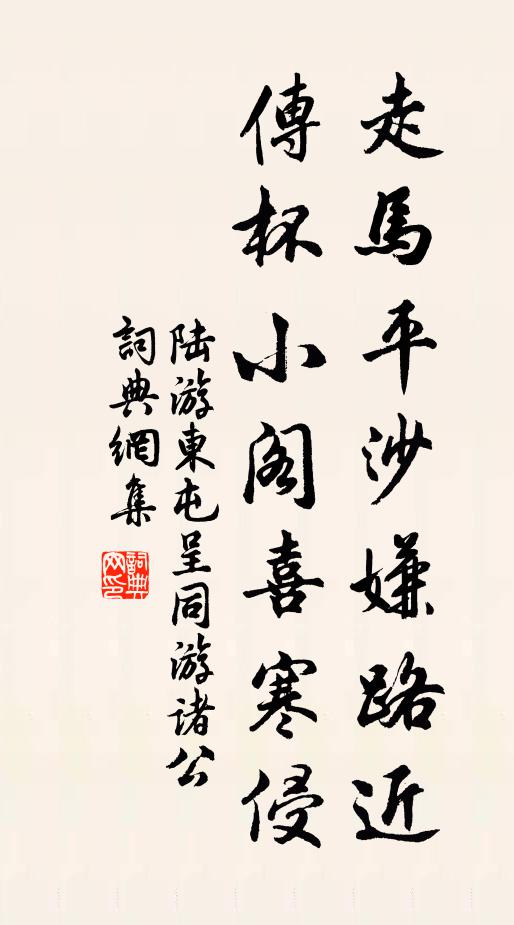 走馬平沙嫌路近
傳杯小閣喜寒侵
陆游東屯呈同游诸公
詞典網集
詞典网印